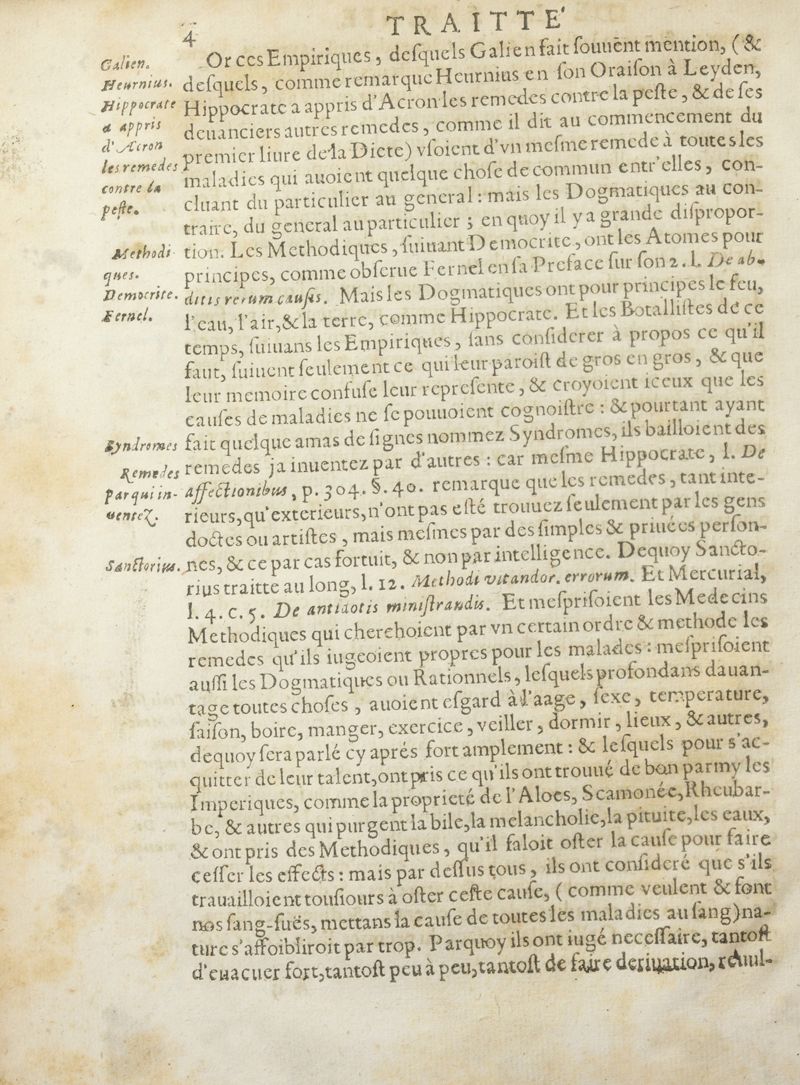 4
TRAITTE'
Galien.
Heurnius.
Hippocrate
a appris
d'Acron
les remedes
contre la
peſte.
Methodi-
ques.
Democrite.
Fernel.
Syndromes
Remedes
par qui in-
uentez.
Sanctorius.
Or ces Empiriques, deſquels Galien fait ſouuēnt mention, (&
deſquels, comme remarque Heurnius en ſon Oraiſon à Leyden,
Hippocrate a appris d'Acron les remedes contre la peſte, & de ſes
deuanciers autres remedes, comme il dit au commencement du
premier liure de la Diete) vſoient d'vn meſme remede à toutes les
maladies qui auoient quelque choſe de commun entr'elles, con-
cluant du particulier au general: mais les Dogmatiques au con-
traire, du general au particulier ; en quoy il y a grande diſpropor-
tion. Les Methodiques, ſuiuant Democrite, ont les Atomes pour
principes, comme obſerue Fernel en ſa Preface ſur ſon 2. l. De ab-
ditis rerum cauſis. Mais les Dogmatiques ont pour principes le feu,
l'eau, l'air, & la terre, comme Hippocrate. Et les Botalliſtes de ce
temps, ſuiuans les Empiriques, ſans conſiderer à propos ce qu'il
faut, ſuiuent ſeulement ce qui leur paroiſt de gros en gros, & que
leur memoire confuſe leur repreſente, & croyoient iceux que les
cauſes de maladies ne ſe pouuoient cognoiſtre : & pourtant ayant
fait quelque amas de ſignes nommez Syndromes, ils bailloient des
remedes ja inuentez par d'autres : car meſme Hippocrate, l. De
affectionibus, p. 304. §. 40. remarque que les remedes, tant inte-
rieurs, qu'exterieurs, n'ont pas eſté trouuez ſeulement par les gens
doctes ou artiſtes, mais meſmes par des ſimples & priuées perſon-
nes, & ce par cas fortuit, & non par intelligence. Dequoy Sancto-
rius traitte au long, l. 12. Methodi vitandor. errorum. Et Mercurial,
l. 4. c. 5. De antidotis miniſtrandis. Et meſpriſoient les Medecins
Methodiques qui cherchoient par vn certain ordre & methode les
remedes qu'ils iugeoient propres pour les malades : meſpriſoient
auſſi les Dogmatiques ou Rationnels, leſquels profondans dauan-
tage toutes choſes, auoient eſgard à l'aage, ſexe, temperature,
ſaiſon, boire, manger, exercice, veiller, dormir, lieux, & autres,
dequoy ſera parlé cy aprés fort amplement : & leſquels pour s'ac-
quitter de leur talent, ont pris ce qu'ils ont trouué de bon parmy les
Imperiques, comme la proprieté de l'Aloes, Scamonée, Rheubar-
be, & autres qui purgent la bile, la melancholie, la pituite, les eaux,
& ont pris des Methodiques, qu'il faloit oſter la cauſe pour faire
ceſſer les effects : mais par deſſus tous, ils ont conſideré que s'ils
trauailloient touſiours à oſter ceſte cauſe, (comme veulent & font
nos ſang-ſuës, mettans la cauſe de toutes les maladies au ſang) na-
ture s'affoibliroit par trop. Parquoy ils ont iugé neceſſaire, tantoſt
d'euacuer fort, tantoſt peu à peu, tantoſt de faire deriuation, reuul-